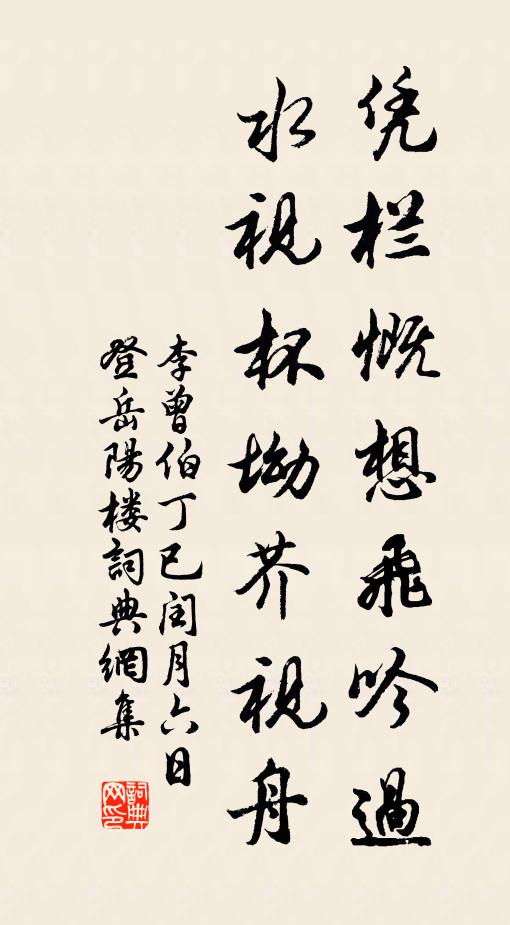 凭栏慨想飛吟過
水視杯坳芥視舟
李曾伯丁巳闰月六日
登岳陽楼詞典網集
詞典
网印